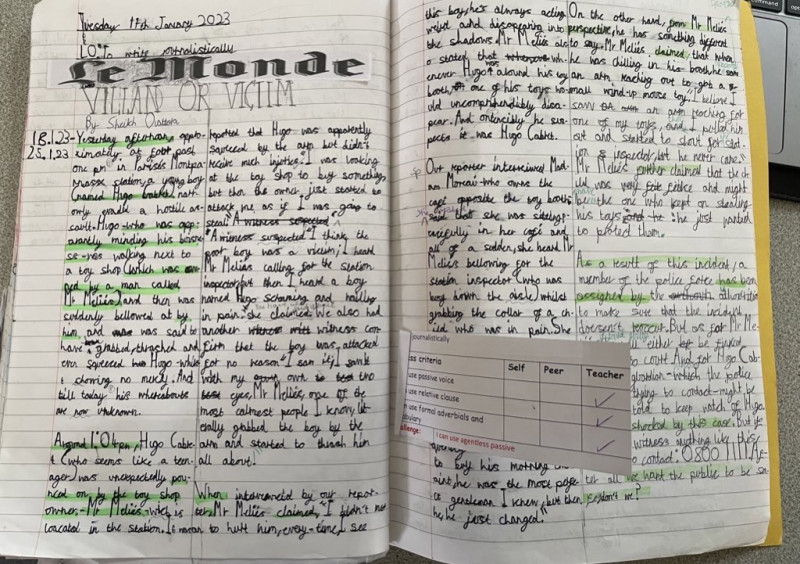 Tuesday 17th January 2023
LO: To write journalistically
Le Monde
VILLAN OR VICTIM
By Sheikh
18.1.23-
25.1.23
Yesterday afternoon, appro-
ximately at past
one pm in Parises Montpa-
rnasse station, a young boy
(named Hugo
only a hostile as-
sault. Hugo-who was app-
arently minding his busine-
ss-was walking next to
a toy shop (which was own-
ed by a man called
Mr Meliès) and then was
suddenly bellowed at by
him, and was said to
have grabbed, thrashed and
even squeezed Hugo while
showing no mercy. And
till today his whereabouts
are now unknown.
Around 1:01pm, Hugo Cabr-
t (who seems like a teen-
ager) was unexpectedly pou-
nced on by the toy shop
owner,-Mr Meliès-who is
located in the station. It
reported that Hugo was apparently
squeezed by the arm but didn't
receive much injuries. I was looking
at the toy shop to buy something,
but then the owner just started to
attack me as if I was going to
steal." A witness suspected
"A witness suspected" I think the
poor boy was a victim; I heard
Mr Meliès calling for the station
inspector, but then I heard a boy
named Hugo screaming and wailing
in pain. She claimed. We also had
another witness con-
firm that the boy was, attacked
for no reason" I saw it, I saw it
with my own two
eyes, Mr Meliès, one of the
most calmest people I know, lit-
erally grabbed the boy by the
arm and started to thrash him
all about.
When interviewed by our repor-
ter, Mr Meliès claimed, I didn't
mean to hurt him, every-time I see
this boy, he's always acting
weird and disappearing into
the shadows. Mr Meliès als-
o stated that wh-
enever Hugo was around his toy
booth, one of his toys wo-
uld uncomprehendibly disa-
pear. And ostensibly he sus-
pects it was Hugo Cabret.
Our reporter interviewed Mad-
am who owns the
café opposite the toy booth
that she was sitting
in her café and
all of a sudden, she heard Mr
Meliès bellowing for the
station inspector (who was
down the aisle) whilst
grabbing the collar of a ch-
ild who was in pain. She
to buy his morning
he was the most
gentleman I knew, but then
he, he just changed."
On the other hand, from Mr Meliès
perspective, he has something different
to say. Mr Meliès, claimed that when
he was chilling in his booth, he saw
an arm, reaching out to grab a
small wind-up mouse toy." I believe I
saw an arm reaching for
one of my toys, I pulled him
out and started to shout for stat-
ion inspector, but he never came."
Mr Meliès further claimed that the ch-
ild was very fierce and might
been the one who kept on stealing
his toys he just wanted
to protect them.
As a result of this incident, a
member of the police force has been
assigned by the
to make sure that the incident
doesn't reoccur. But as for Mr Me-
either be fined
to court. And for Hugo Cab-
which the police
trying to contact-might be
told to keep watch of Hugo.
shocked by this case. But if
witness anything like this
to contact: 0800 1111. Af-
ter all we want the public to be sa-
fe, don't we?
journalistically
ss criteria Self Peer Teacher
use passive voice ✓
use relative clause ✓
use formal adverbials and ✓
I can use agentless passive ✓